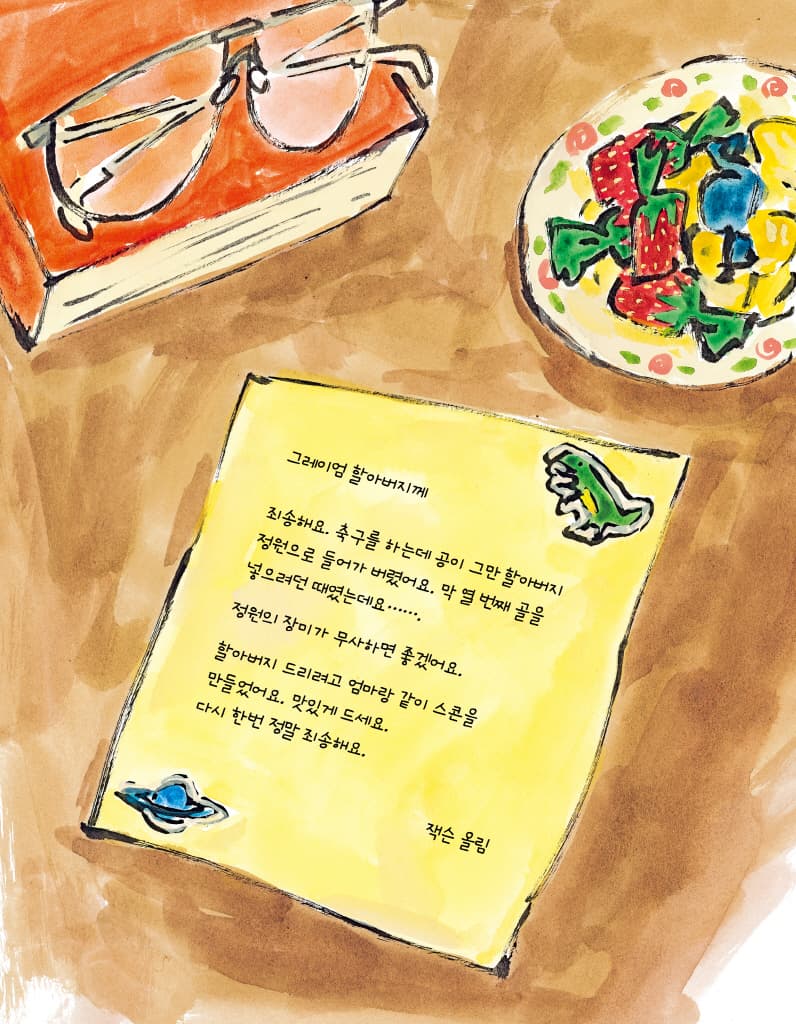 그레이엄 할아버지께
죄송해요. 축구를 하는데 공이 그만 할아버지
정원으로 들어가 버렸어요. 막 열 번째 골을
넣으려던 때였는데요…….
정원의 장미가 무사하면 좋겠어요.
할아버지 드리려고 엄마랑 같이 스콘을
만들었어요. 맛있게 드세요.
다시 한번 정말 죄송해요.
잭슨 올림